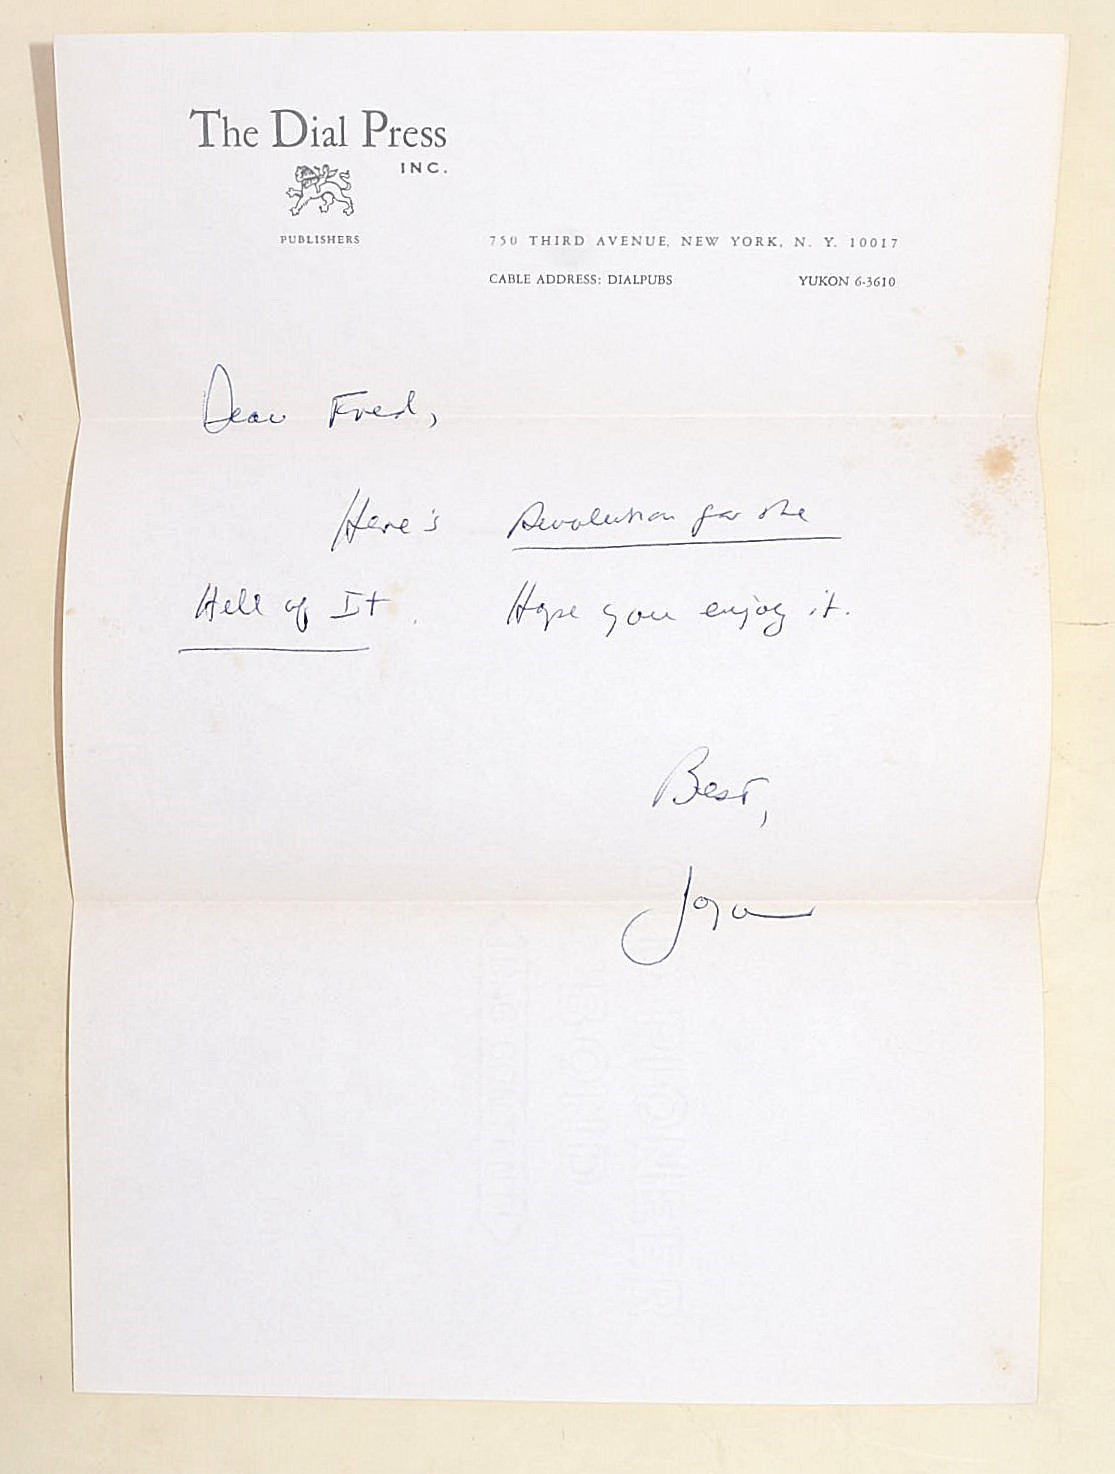 The Dial Press
INC.
PUBLISHERS
750 THIRD AVENUE, NEW YORK, N. Y. 10017
CABLE ADDRESS: DIALPUBS YUKON 6-3610
Dear Fred,
Here's Revolution for the
Hell of It. Hope you enjoy it.
Best,